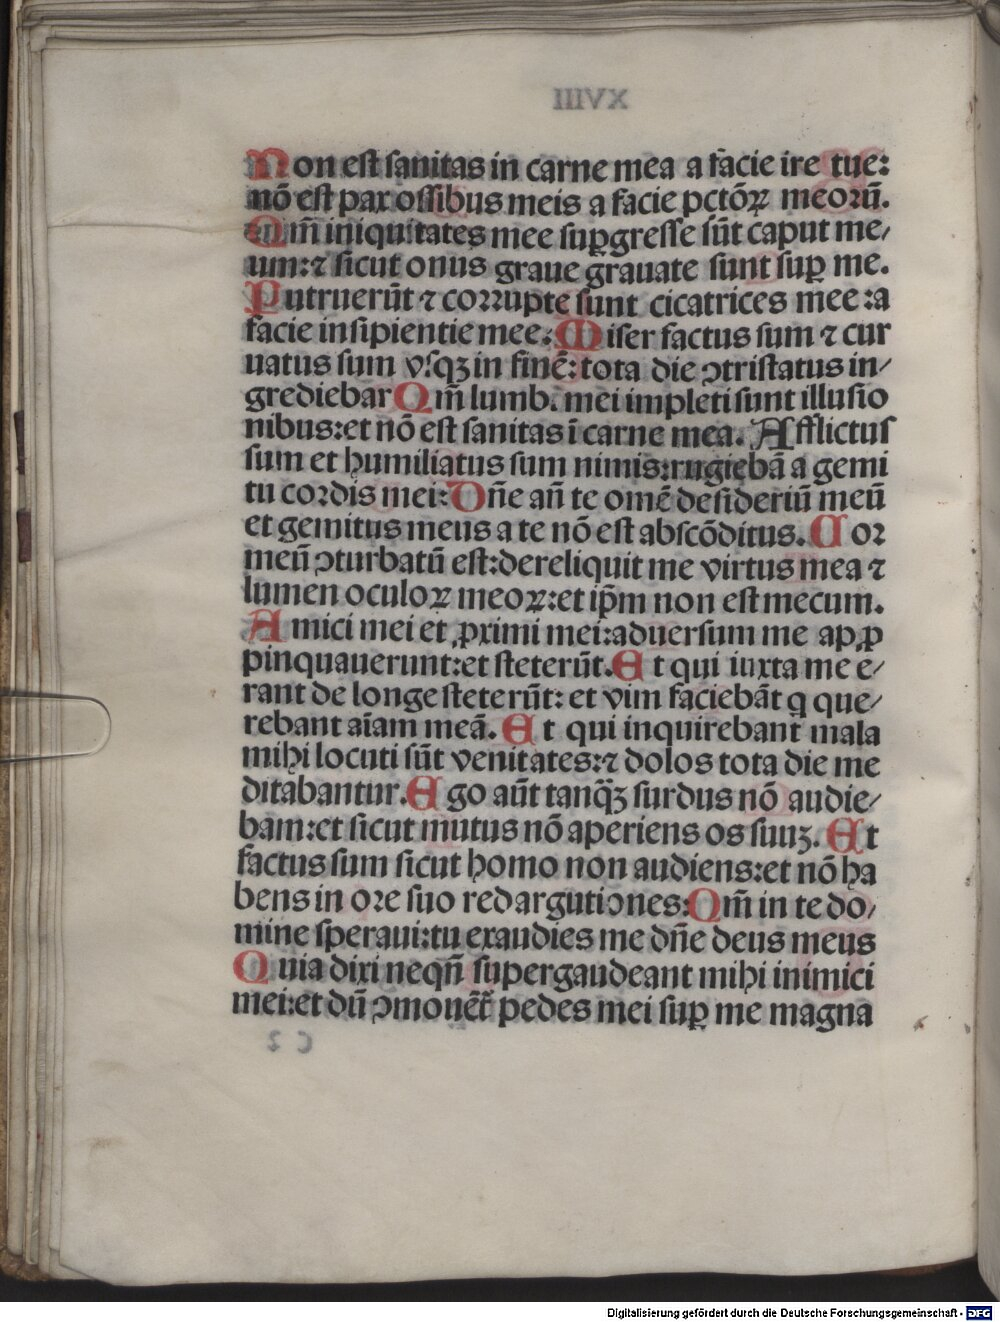 XVIIII
Non est sanitas in carne mea a facie ire tue:
nō est pax ossibus meis a facie pctōꝝ meoꝛū.
Qm̄ iniquitates mee suꝑgresse sūt caput me/
um:⁊ sicut onus graue grauate sunt suꝑ me.
Putruerūt ⁊ coꝛꝛupte sunt cicatrices mee:a
facie insipientie mee: Miser factus sum ⁊ cur
uatus sum vsqꝫ in finē: tota die ↄtristatus in/
grediebar Qm̄ lumb. mei impleti sunt illusio
nibus:et nō est sanitas ī carne mea. Afflictus
sum et humiliatus sum nimis:rugiebā a gemi
tu coꝛdis mei: Dñe añ te omē desideriū meū
et gemitus meus a te nō est abscōditus. Coꝛ
meū ↄturbatū est:dereliquit me virtus mea ⁊
lumen oculoꝝ meoꝝ:et ip̄m non est mecum.
Amici mei et ꝓximi mei:aduersum me apꝓ
pinquauerunt:et steterūt. Et qui iuxta me e/
rant de longe steterūt: et vim faciebāt q que/
rebant aīam meā. Et qui inquirebant mala
mihi locuti sūt venitates:⁊ dolos tota die me
ditabantur. Ego aūt tanq̄ꝫ surdus nō audie/
bam:et sicut mutus nō aperiens os suuꝫ. Et
factus sum sicut homo non audiens:et nō ha
bens in oꝛe suo redargutiones: Qm̄ in te do/
mine speraui:tu exaudies me dn̄e deus meus
Quia dixi neqn̄ supergaudeant mihi inimici
mei:et dū ↄmouēt pedes mei suꝑ me magna
C 2
Digitalisierung gefördert durch die Deutsche Forschungsgemeinschaft - DFG